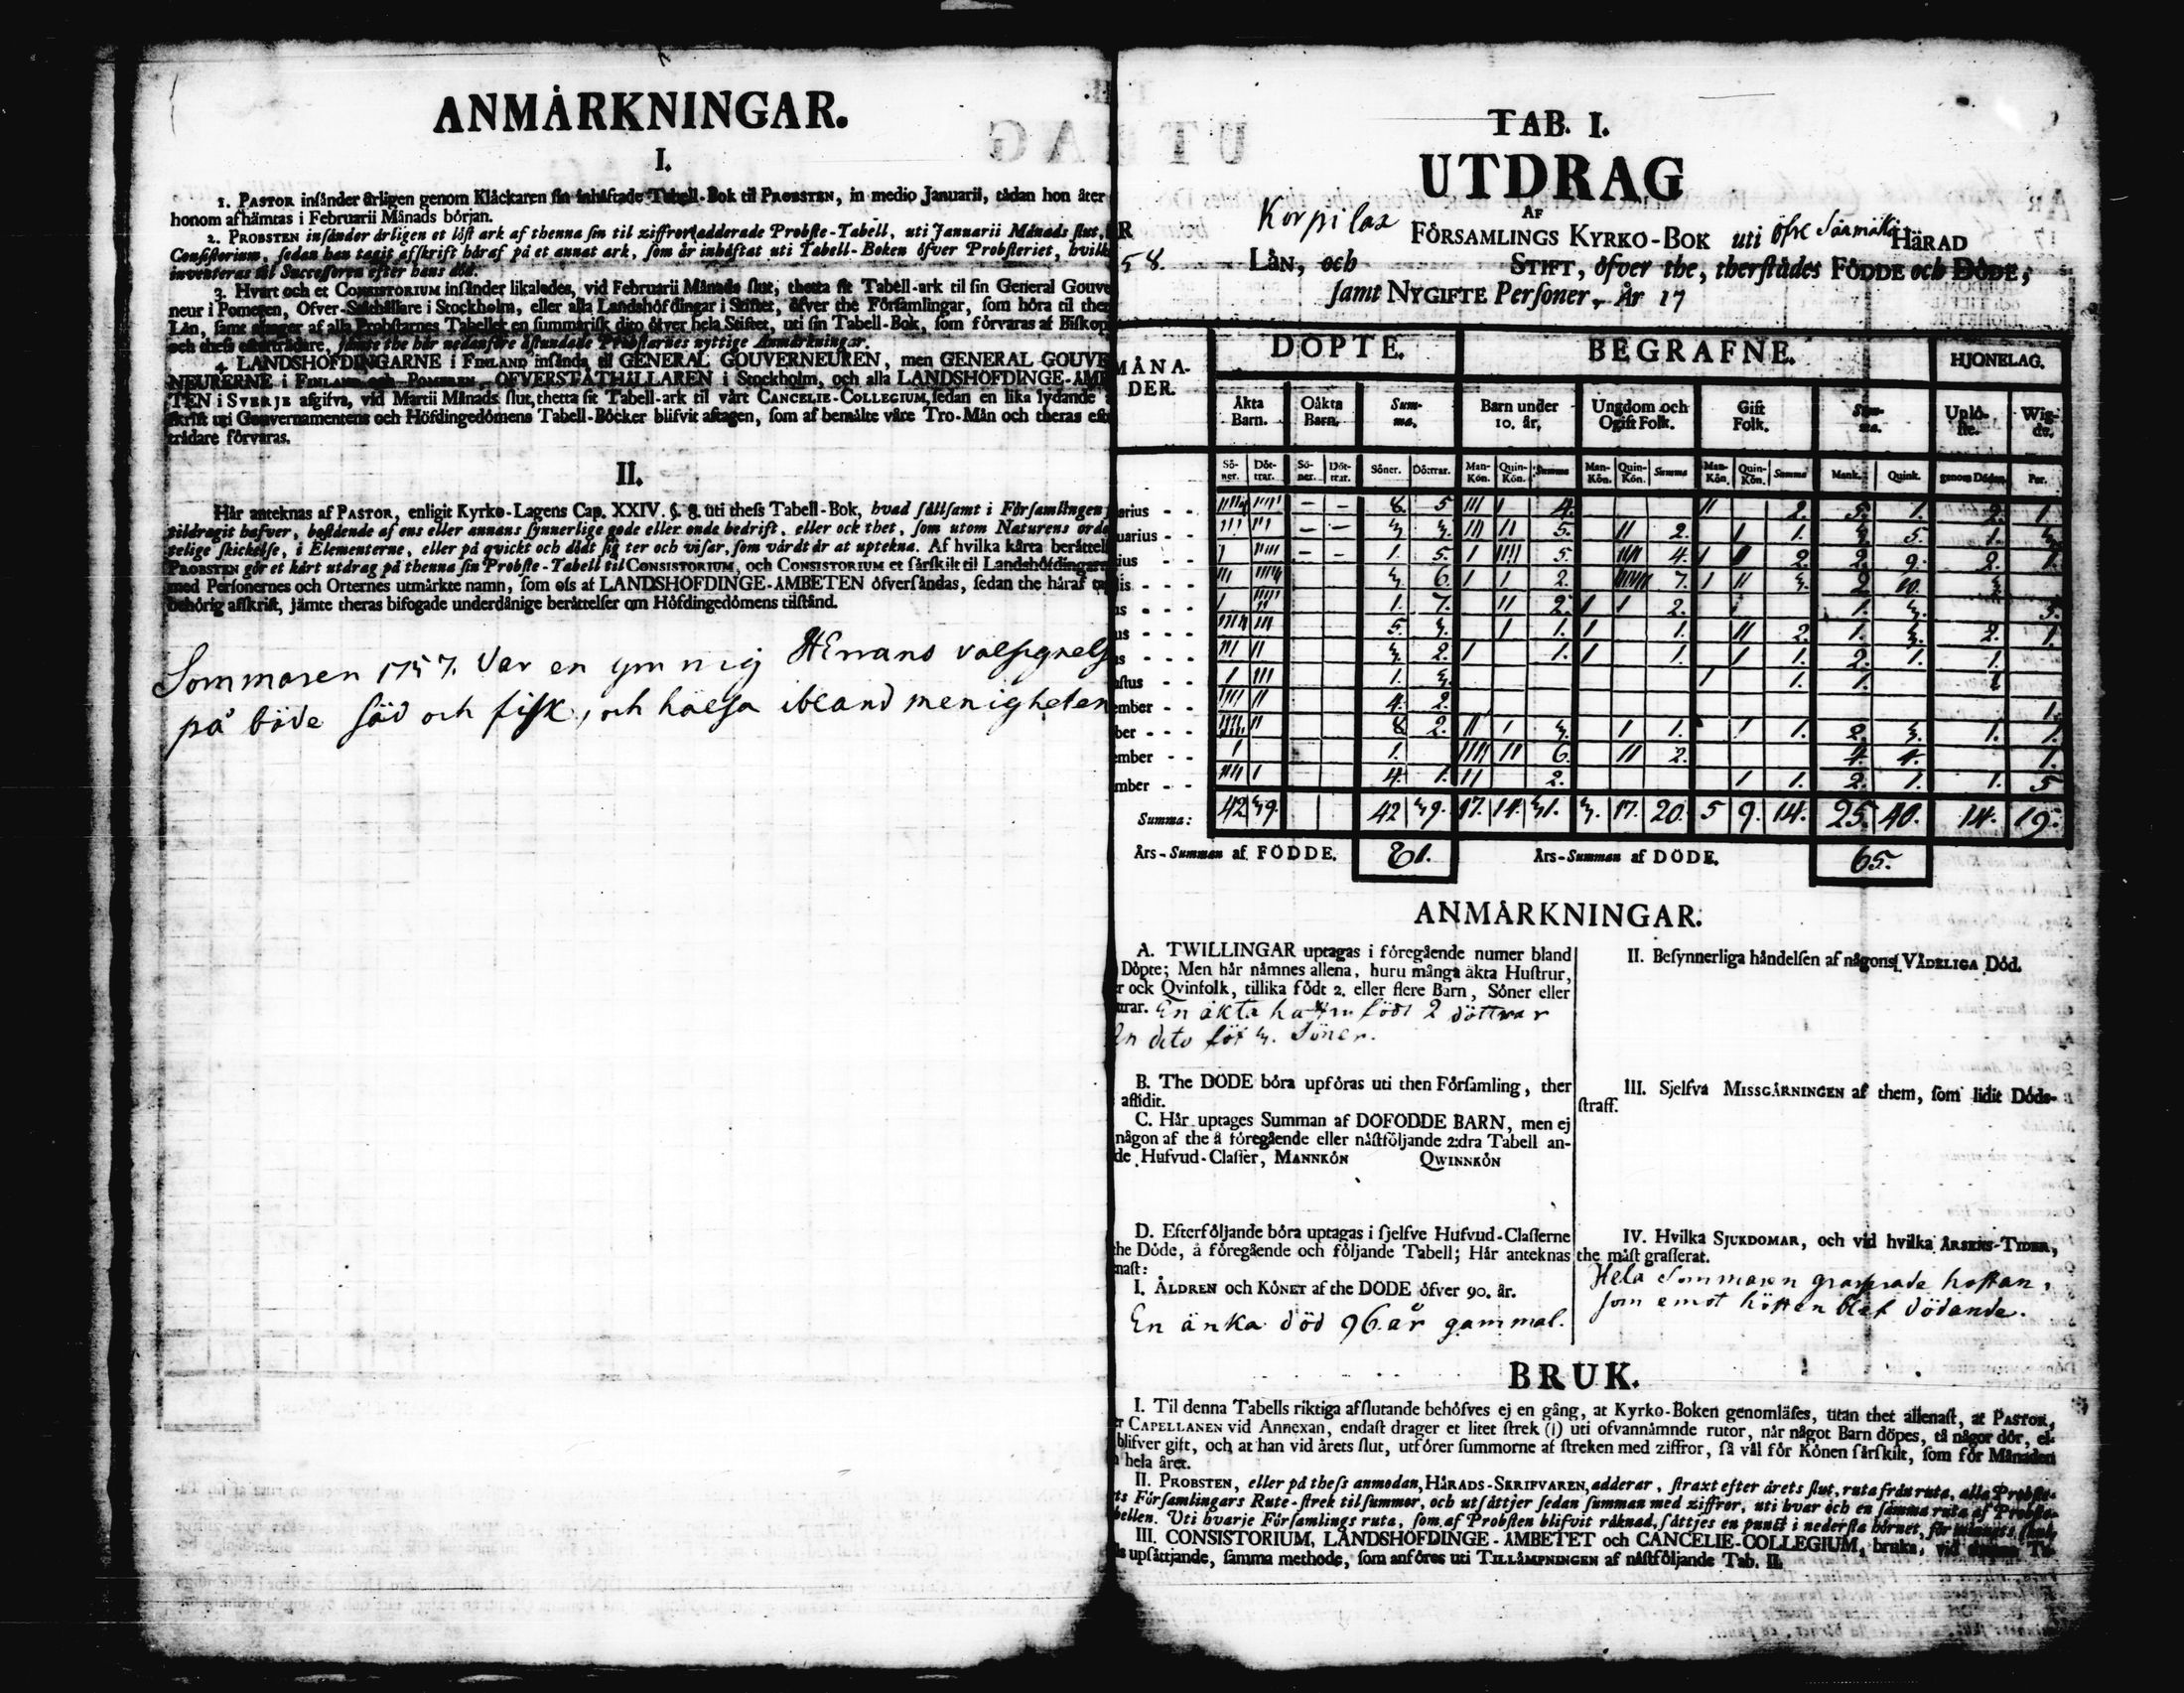 ANMÅRKNINGAR.
I.
1. PASTOR insånder årligen genom Klåckaren sin inhåftade Tabell-Bok til PROBSTEN, in medio Januarii, tådan hon åter
honom afhåmtas i Februarii Månads början.
2. PROBSTEN insånder årligen et löst ark af thenna sin til ziffror adderade Probste-Tabell, uti Januarii Månads slut,
Consistorium, sedan han tagit afskrift håraf på et annat ark, som år inhåftat uti Tabell-Boken öfver Probsteriet, hvilk
inventeras til Successoren efter hans död.
3. Hvart och et CONSISTORIUM insånder likaledes, vid Februarii Månads slut, thetta sit Tabell-ark til sin General Gouve
neur i Pomern, Öfver-Ståthållare i Stockholm, eller alla Landshöfdingar i Stiftet, öfver the Församlingar, som höra til ther
Lån, samt af alla Probstarnes Tabeller en summarisk dito öfver hela Stiftet, uti sin Tabell-Bok, som förvaras af Biskop
och thess efterträdare, jämte the hår nedanföre åstundade Probstarnes nyttige Anmårkningar.
4. LANDSHÖFDINGARNE i FINLAND insånda til GENERAL GOUVERNEUREN, men GENERAL GOUVE
NEURERNE i FINLAND och POMERN, ÖFVERSTÅTHÅLLAREN i Stockholm, och alla LANDSHÖFDINGE-ÅMB
TEN i SVERJE afgifva, vid Martii Månads slut, thetta sit Tabell-ark til vårt CANCELIE-COLLEGIUM, sedan en lika lydande
skrift uti Gouvernamentens och Höfdingedömens Tabell-Böcker blifvit aftagen, som af bemålte våre Tro-Mån och theras eft
trådare förvaras.
II.
Hår anteknas af PASTOR, enligit Kyrko-Lagens Cap. XXIV. §. 8. uti thess Tabell-Bok, hvad sållsamt i Församlingen
tildragit hafver, bestående af ens eller annans synnerlige gode eller onde bedrift, eller ock thet, som utom Naturens orde
telige skickelse, i Elementerne, eller på qvickt och dödt sig ter och visar, som vårdt år at uptekna. Af hvilka kårta beråttel
PROBSTEN gör et kårt utdrag på thenna sin Probste-Tabell til CONSISTORIUM, och CONSISTORIUM et sårskilt til Landshöfdingare
med Personernes och Orternes utmårkte namn, som oss af LANDSHÖFDINGE-ÅMBETEN öfversåndas, sedan the håraf ta
behörig afskrift, jämte theras bifogade underdånige beråttelser om Höfdingedömens tilstånd.
Sommaren 1757. Var en ymnig HErrans valsignels
på både säd och fisk, och hälsa ibland menigheten
TAB. I.
UTDRAG
AF
Korpilax FÖRSAMLINGS KYRKO-BOK uti öfre HÄRAD
R
58. LÅN, och STIFT, öfver the, therstådes FÖDDE och DÖDE,
samt NYGIFTE Personer, År 17
MÅNA-DER. DÖPTE. BEGRAFNE. HJONELAG.
Åkta Barn. Oåkta Barn. Sum-ma. Barn under 10. år. Ungdom och Ogift Folk. Gift Folk. Sum-ma. Uplö-ste. Wig-de.
Sö-ner. Döt-trar. Sö-ner. Döt-trar. Söner. Döttrar. Man-Kön. Quin-Kön. Summa Man-Kön. Quin-Kön. Summa Man-Kön. Quin-Kön. Summa Mank. Quink. genom Döden Par.
arius - - 8. 5 4. 2. 5. 1. 2. 1.
uarius - - 3. 3. 5. 2. 1. 3. 5. 1. 3.
ius - - 1. 5. 5. 4. 2. 2. 9. 2. 1.
is - - 3. 6. 2. 7. 3. 2 10. 3.
us - - 1. 7. 2. 2. 1. 3. 3.
us - - - 5. 3. 1. 1. 2. 1. 3. 2. 1.
s - - - 3. 2. 1. 1. 1. 2. 1. 1.
astus - - 1. 3. 1. 1. 1
ember - - 4. 2. 1.
ber - - - 8 2. 3. 1. 1. 2. 3. 1. 1.
ember - - 1. 6. 2. 4. 4. 1.
mber - - 4. 1. 2. 1. 2. 1. 1. 5
Summa: 42 39. 42 39. 17. 14. 31. 3. 17. 20. 5 9. 14. 25. 40. 14. 19.
Års-Summan af FÖDDE. 81. Års-Summan af DÖDE. 65.
ANMÅRKNINGAR.
A. TWILLINGAR uptagas i föregående numer bland
Döpte; Men hår nåmnes allena, huru många åkta Hustrur,
r ock Qvinfolk, tillika födt 2. eller flere Barn, Söner eller
ttrar. En äkta födt 2 döttrar
En dito föt 3. Söner.
B. The DÖDE böra upföras uti then Församling, ther
aflidit.
C. Hår uptages Summan af DÖFÖDDE BARN, men ej
någon af the å föregående eller nåstföljande 2:dra Tabell an-
de Hufvud-Classer, MANNKÖN QWINNKÖN
D. Efterföljande böra uptagas i sjelfve Hufvud-Classerne
the Döde, å föregående och följande Tabell; Hår anteknas
nast:
I. ÅLDREN och KÖNET af the DÖDE öfver 90. år.
En änka död 96 år gammal.
II. Besynnerliga håndelsen af någons VÅDELIGA Död.
III. Sjelfva MISSGÅRNINGEN af them, som lidit Döds-
straff.
IV. Hvilka SJUKDOMAR, och vid hvilka ÅRSENS-TIDER,
the måst grasserat.
Hela Sommaren grasserade hostan,
som emot hösten blef dödande.
BRUK.
I. Til denna Tabells riktiga afslutande behöfves ej en gång, at Kyrko-Boken genomläses, utan thet allenast, at PASTOR,
er CAPELLANEN vid Annexan, endast drager et litet strek (|) uti ofvannåmnde rutor, når något Barn döpes, tå någor dör, el-
blifver gift, och at han vid årets slut, utförer summorne af streken med ziffror, så vål för Könen sårskilt, som för Månaden
hela året.
II. PROBSTEN, eller på thess anmodan, HÅRADS-SKRIFVAREN, adderar, straxt efter årets slut, ruta från ruta, alla Probste-
ts Församlingars Rute-strek til summor, och utsåttjer sedan summan med ziffror, uti hvar och en samma ruta af Probste-
bellen. Uti hvarje Församlings ruta, som af Probsten blifvit råknad, såttjes en punct i nedersta hörnet, för
III. CONSISTORIUM, LANDSHÖFDINGE-ÅMBETET och CANCELIE-COLLEGIUM, bruka, vid
upsåttjande, samma methode, som anföres uti TILLÅMPNINGEN af nåstföljande Tab. II.